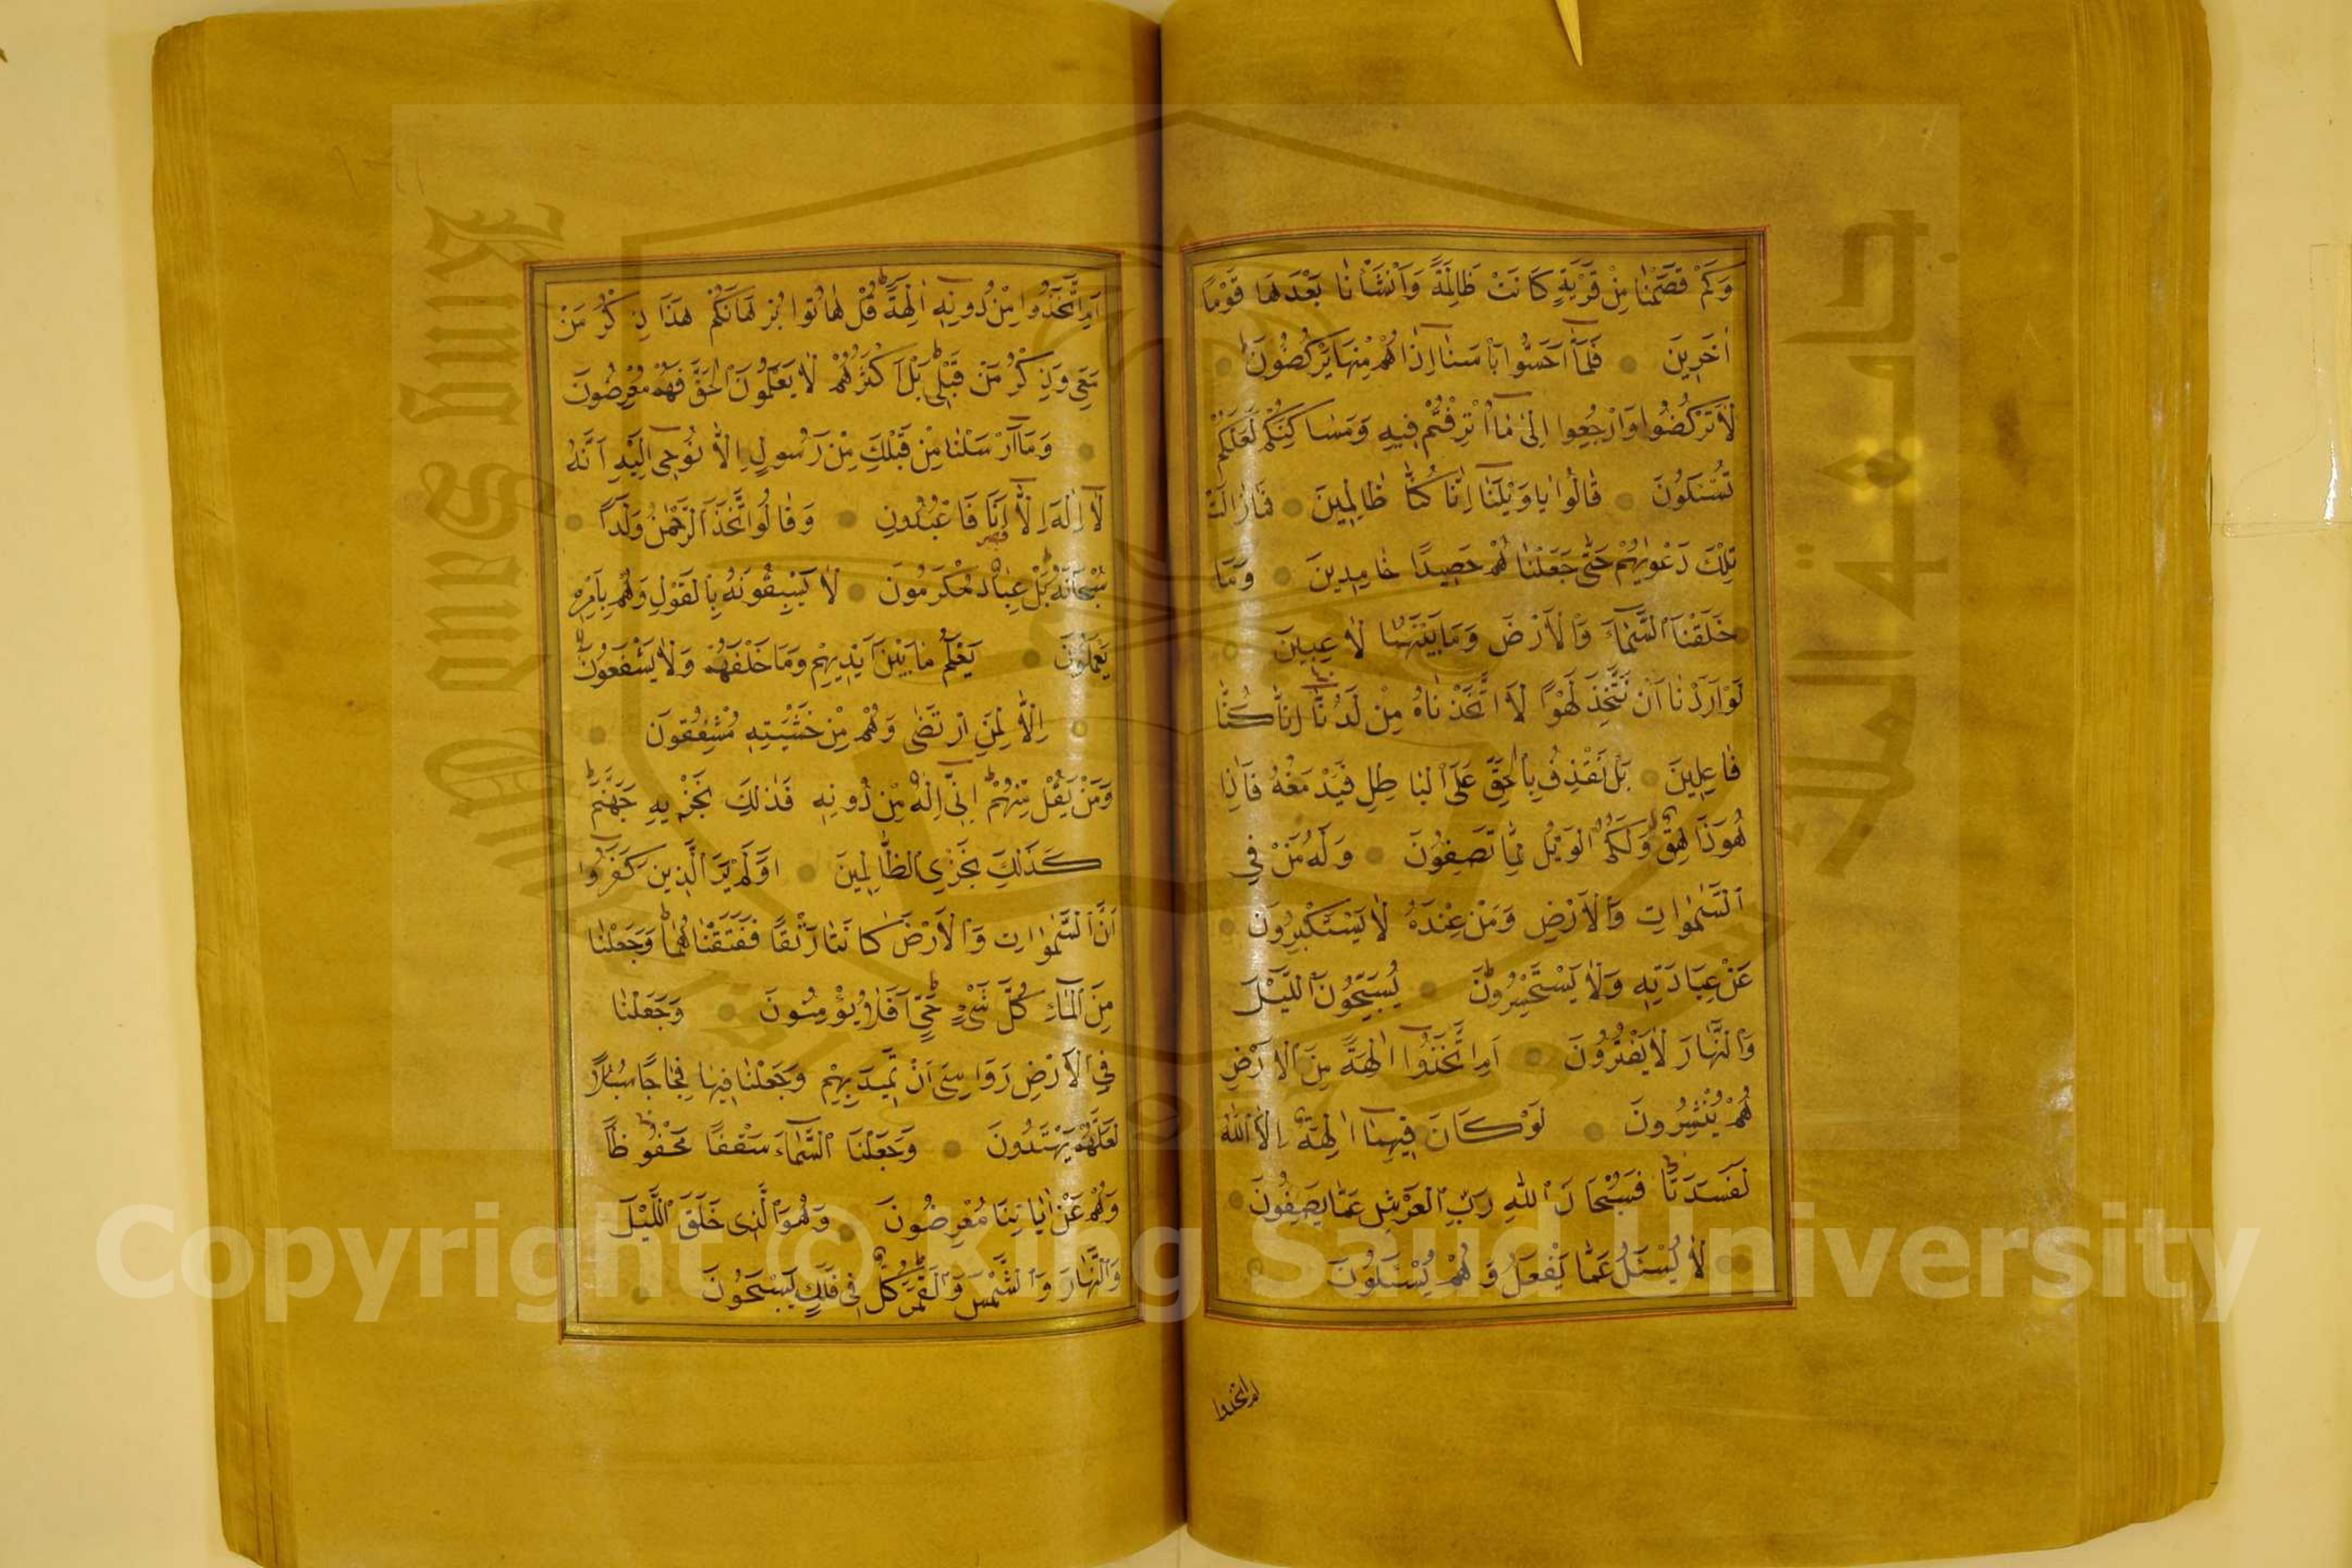 وَكَمْ قَصَمْنَا مِنْ قَرْيَةٍ كَانَتْ ظَالِمَةً وَاَنْشَأْنَا بَعْدَهَا قَوْمًا
اٰخَرِينَ فَلَمَّٓا اَحَسُّوا بَأْسَنَٓا اِذَا هُمْ مِنْهَا يَرْكُضُونَ
لَا تَرْكُضُوا وَارْجِعُٓوا اِلٰى مَٓا اُتْرِفْتُمْ فِيهِ وَمَسَاكِنِكُمْ لَعَلَّكُمْ
تُسْئَلُونَ قَالُوا يَا وَيْلَنَٓا اِنَّا كُنَّا ظَالِمِينَ فَمَا زَالَتْ
تِلْكَ دَعْوٰيهُمْ حَتّٰى جَعَلْنَاهُمْ حَصِيدًا خَامِدِينَ وَمَا
خَلَقْنَا السَّمَٓاءَ وَالْاَرْضَ وَمَا بَيْنَهُمَا لَاعِبِينَ
لَوْ اَرَدْنَٓا اَنْ نَتَّخِذَ لَهْوًا لَاتَّخَذْنَاهُ مِنْ لَدُنَّٓا اِنْ كُنَّا
فَاعِلِينَ بَلْ نَقْذِفُ بِالْحَقِّ عَلَى الْبَاطِلِ فَيَدْمَغُهُ فَاِذَا
هُوَ زَاهِقٌ وَلَكُمُ الْوَيْلُ مِمَّا تَصِفُونَ وَلَهُ مَنْ فِي
السَّمٰوَاتِ وَالْاَرْضِ وَمَنْ عِنْدَهُ لَا يَسْتَكْبِرُونَ
عَنْ عِبَادَتِهِ وَلَا يَسْتَحْسِرُونَ يُسَبِّحُونَ اللَّيْلَ
وَالنَّهَارَ لَا يَفْتُرُونَ اَمِ اتَّخَذُٓوا اٰلِهَةً مِنَ الْاَرْضِ
هُمْ يُنْشِرُونَ لَوْ كَانَ فِيهِمَٓا اٰلِهَةٌ اِلَّا اللّٰهُ
لَفَسَدَتَا فَسُبْحَانَ اللّٰهِ رَبِّ الْعَرْشِ عَمَّا يَصِفُونَ
لَا يُسْئَلُ عَمَّا يَفْعَلُ وَهُمْ يُسْئَلُونَ
ام اتخذوا
اَمِ اتَّخَذُوا مِنْ دُونِهِٓ اٰلِهَةً قُلْ هَاتُوا بُرْهَانَكُمْ هٰذَا ذِكْرُ مَنْ
مَعِيَ وَذِكْرُ مَنْ قَبْلِي بَلْ اَكْثَرُهُمْ لَا يَعْلَمُونَ الْحَقَّ فَهُمْ مُعْرِضُونَ
وَمَٓا اَرْسَلْنَا مِنْ قَبْلِكَ مِنْ رَسُولٍ اِلَّا نُوحِٓي اِلَيْهِ اَنَّهُ
لَٓا اِلٰهَ اِلَّٓا اَنَا فَاعْبُدُونِ وَقَالُوا اتَّخَذَ الرَّحْمٰنُ وَلَدًا
سُبْحَانَهُ بَلْ عِبَادٌ مُكْرَمُونَ لَا يَسْبِقُونَهُ بِالْقَوْلِ وَهُمْ بِاَمْرِهِ
يَعْمَلُونَ يَعْلَمُ مَا بَيْنَ اَيْدِيهِمْ وَمَا خَلْفَهُمْ وَلَا يَشْفَعُونَ
اِلَّا لِمَنِ ارْتَضٰى وَهُمْ مِنْ خَشْيَتِهِ مُشْفِقُونَ
وَمَنْ يَقُلْ مِنْهُمْ اِنِّٓي اِلٰهٌ مِنْ دُونِهِ فَذٰلِكَ نَجْزِيهِ جَهَنَّمَ
كَذٰلِكَ نَجْزِي الظَّالِمِينَ اَوَلَمْ يَرَ الَّذِينَ كَفَرُٓوا
اَنَّ السَّمٰوَاتِ وَالْاَرْضَ كَانَتَا رَتْقًا فَفَتَقْنَاهُمَا وَجَعَلْنَا
مِنَ الْمَٓاءِ كُلَّ شَيْءٍ حَيٍّ اَفَلَا يُؤْمِنُونَ وَجَعَلْنَا
فِي الْاَرْضِ رَوَاسِيَ اَنْ تَمِيدَ بِهِمْ وَجَعَلْنَا فِيهَا فِجَاجًا سُبُلًا
لَعَلَّهُمْ يَهْتَدُونَ وَجَعَلْنَا السَّمَٓاءَ سَقْفًا مَحْفُوظًا
وَهُمْ عَنْ اٰيَاتِنَا مُعْرِضُونَ وَهُوَ الَّذِي خَلَقَ اللَّيْلَ
وَالنَّهَارَ وَالشَّمْسَ وَالْقَمَرَ كُلٌّ فِي فَلَكٍ يَسْبَحُونَ
Copyright © King Saud University